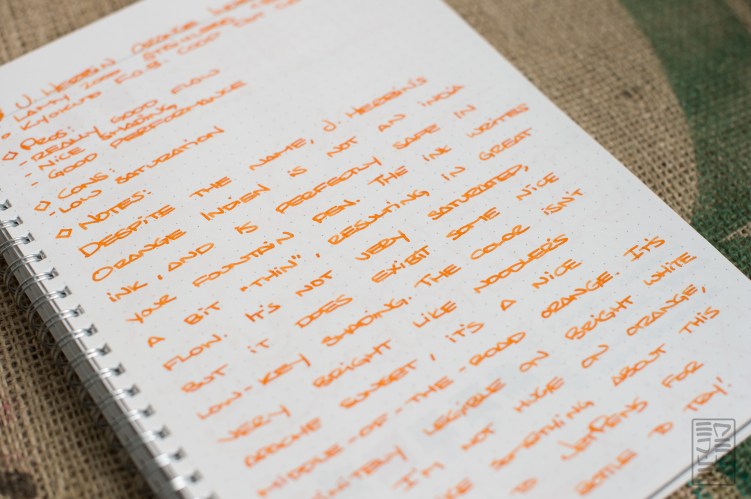 J. HERBIN ORANGE
LAMY 2000
KYOKUTO F.O.B. COOP DOT
◇ PROS:
- REALLY GOOD FLOW
- NICE SHADING
- GOOD PERFORMANCE
◇ CONS:
- LOW SATURATION
◇ NOTES:
DESPITE THE NAME, J. HERBIN'S
ORANGE INDIEN IS NOT AN INDIA
INK, AND IS PERFECTLY SAFE IN
YOUR FOUNTAIN PEN. THE INK WRITES
A BIT "THIN", RESULTING IN GREAT
FLOW. IT'S NOT VERY SATURATED,
BUT IT DOES EXIBIT SOME NICE
LOW-KEY SHADING. THE COLOR ISN'T
VERY BRIGHT LIKE NOODLER'S
APACHE SUNSET, IT'S A NICE
MIDDLE-OF-THE-ROAD ORANGE. IT'S
LEGIBLE ON BRIGHT WHITE
I'M NOT HUGE ON ORANGE,
SOMETHING ABOUT THIS
JETPENS FOR
BOTTLE TO TRY!